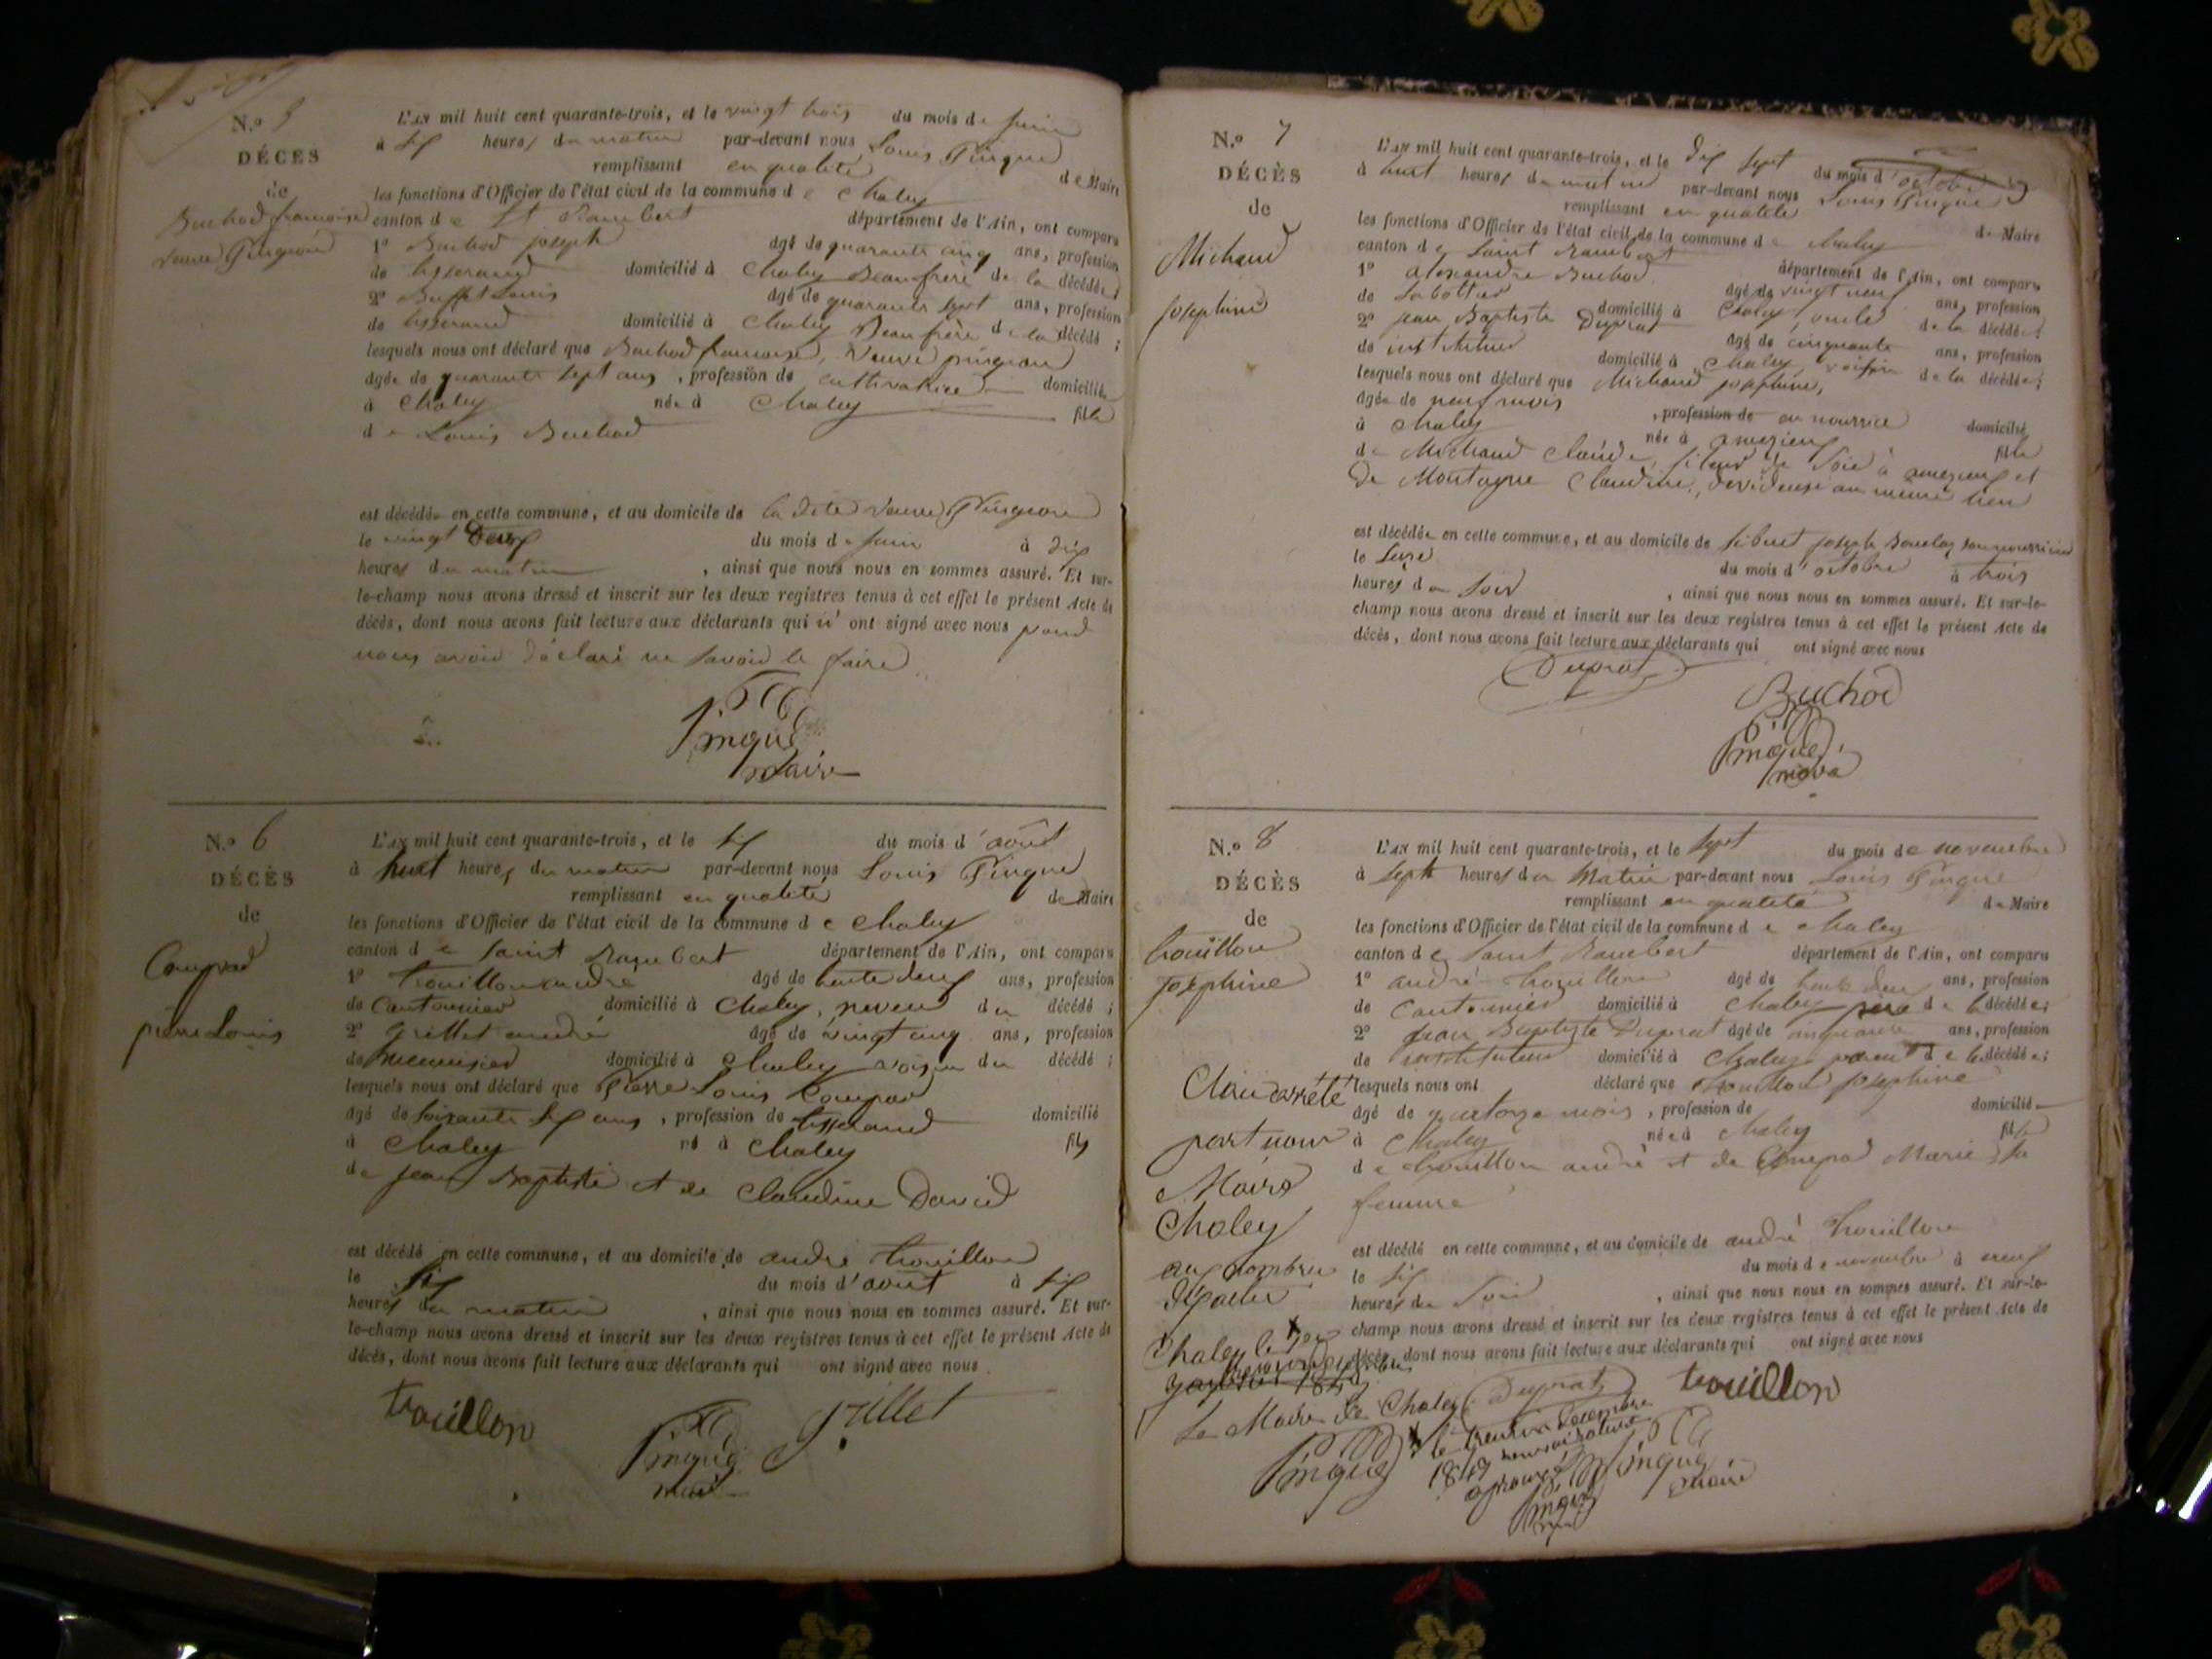 N.º 5
DÉCES
de
Buchod françoise
veuve Pingeon
L'AN mil huit cent quarante-trois, et le vingt trois du mois de juin
à six heures du matin par-devant nous Louis Pingue
remplissant en qualité de Maire
les fonctions d'Officier de l'état civil de la commune de Chaley
canton de St Rambert département de l'Ain, ont comparu
1º Buchod joseph âgé de quarante cinq ans, profession
de tisserand domicilié à Chaley Beaufrère de la décédée
2º Buffet Louis âgé de quarante sept ans, profession
de tisserand domicilié à Chaley Beau frère de la décédé ;
lesquels nous ont déclaré que Buchod francoise, Veuve pingeon
âgée de quarante sept ans, profession de cultivatrice domiciliée
à Chaley née à Chaley fille
de Louis Buchod
est décédée en cette commune, et au domicile de la dite veuve Pingeon
le vingt Deux du mois de juin à dix
heures du matin, ainsi que nous nous en sommes assuré. Et sur-
le-champ nous avons dressé et inscrit sur les deux registres tenus à cet effet le présent Acte de
décès, dont nous avons fait lecture aux déclarants qui n'ont signé avec nous pour
nous avoir déclaré ne savoir le faire
Pingue
Maire
N.º 6
DÉCÈS
de
Compod
pierre Louis
L'AN mil huit cent quarante-trois, et le six du mois d'août
à huit heures du matin par-devant nous Louis Pingue
remplissant en qualité de Maire
les fonctions d'Officier de l'état civil de la commune de Chaley
canton de Saint Rambert département de l'Ain, ont comparu
1º trouillon andré âgé de trente deux ans, profession
de Cantonnier domicilié à Chaley, neveu du décédé ;
2º Grillet andré âgé de vingt cinq ans, profession
de menuisier domicilié à Chaley voisin du décédé ;
lesquels nous ont déclaré que Pierre Louis Compod
âgé de soixante six ans, profession de tisserand domicilié
à Chaley né à Chaley fils
de jean Baptiste et de Claudine David
est décédé en cette commune, et au domicile de andré trouillon
le six du mois d'août à six
heures du matin, ainsi que nous nous en sommes assuré. Et sur-
le-champ nous avons dressé et inscrit sur les deux registres tenus à cet effet le présent Acte de
décès, dont nous avons fait lecture aux déclarants qui ont signé avec nous
trouillon
Pingue
grillet
N.º 7
DÉCÈS
de
Michaud
josephine
L'AN mil huit cent quarante-trois, et le dix sept du mois d'octobre
à huit heures du matin par-devant nous Louis Pingue
remplissant en qualité de Maire
les fonctions d'Officier de l'état civil de la commune de Chaley
canton de Saint Rambert département de l'Ain, ont comparu
1º alexandre Buchod âgé de vingt neuf ans, profession
de sabottier domicilié à Chaley, oncle de la décédée
2º jean Baptiste Duprat âgé de cinquante ans, profession
de instituteur domicilié à Chaley voisin de la décédée;
lesquels nous ont déclaré que Michaud josephine,
âgée de neuf mois, profession de en nourrice domicilié
à Chaley née à amezieux fille
de Michaud Claude, fileur de Soie à amezieux et
de Montagne Claudine, devideuse au même lieu
est décédée en cette commune, et au domicile de
le Seize du mois d'octobre à trois
heures du soir, ainsi que nous nous en sommes assuré. Et sur-le-
champ nous avons dressé et inscrit sur les deux registres tenus à cet effet le présent Acte de
décès, dont nous avons fait lecture aux déclarants qui ont signé avec nous
Duprat
Buchod
Pingue
N.º 8
DÉCÈS
de
trouillon
josephine
L'AN mil huit cent quarante-trois, et le sept du mois de novembre
à sept heures du Matin par-devant nous Louis Pingue
remplissant en qualité de Maire
les fonctions d'Officier de l'état civil de la commune de Chaley
canton de Saint Rambert département de l'Ain, ont comparu
1º andré trouillon âgé de trente deux ans, profession
de Cantonnier domicilié à Chaley père de la décédée;
2º jean Baptiste Duprat âgé de cinquante ans, profession
de instituteur domicilié à Chaley de la décédée;
lesquels nous ont déclaré que trouillon josephine
âgé de quatorze mois, profession de domicilié
à Chaley née à Chaley fille
de trouillon andré et de Compod Marie sa
femme
est décédé en cette commune, et au domicile de andré trouillon
le six du mois de novembre à neuf
heures du Soir, ainsi que nous nous en sommes assuré. Et sur-le-
champ nous avons dressé et inscrit sur les deux registres tenus à cet effet le présent Acte de
décès, dont nous avons fait lecture aux déclarants qui ont signé avec nous
Clos et arrêté
par nous
Maire
Chaley
au nombre
Chaley le
Le Maire de Chaley
Duprat
trouillon
Pingue
le trente un Décembre
Pingue
Maire